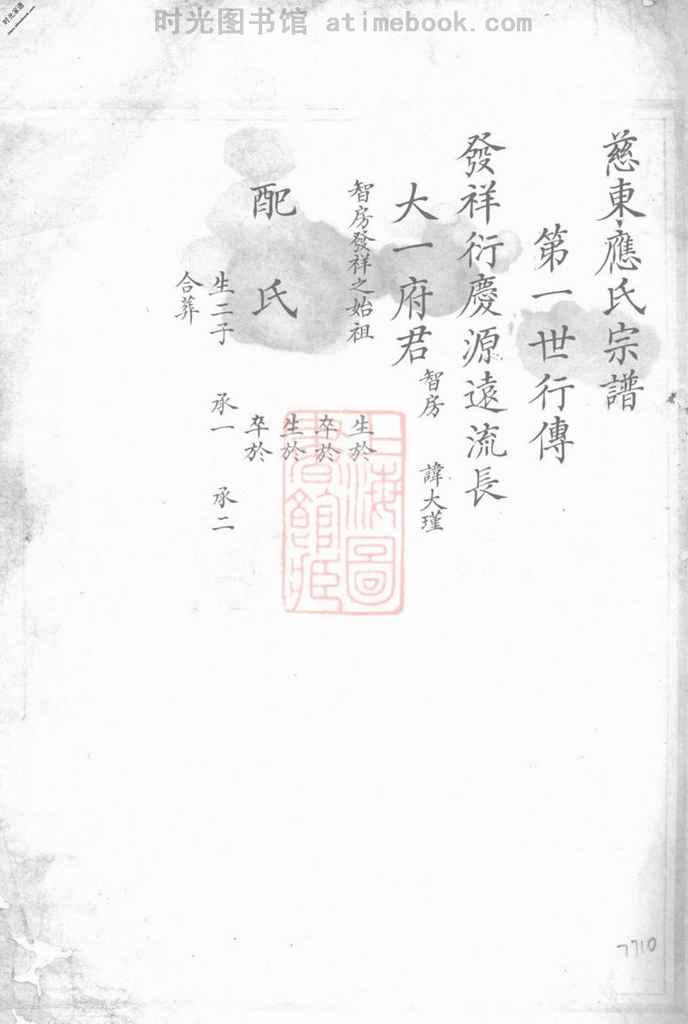 时光图书馆 atimebook.com
慈東應氏宗譜
第一世行傳
發祥衍慶源遠流長
大一府君 智房 諱大瑾
智房發祥之始祖 生於
卒於
配氏 生於
卒於
生二子 承一 承二
合葬
上海圖書館藏
7710